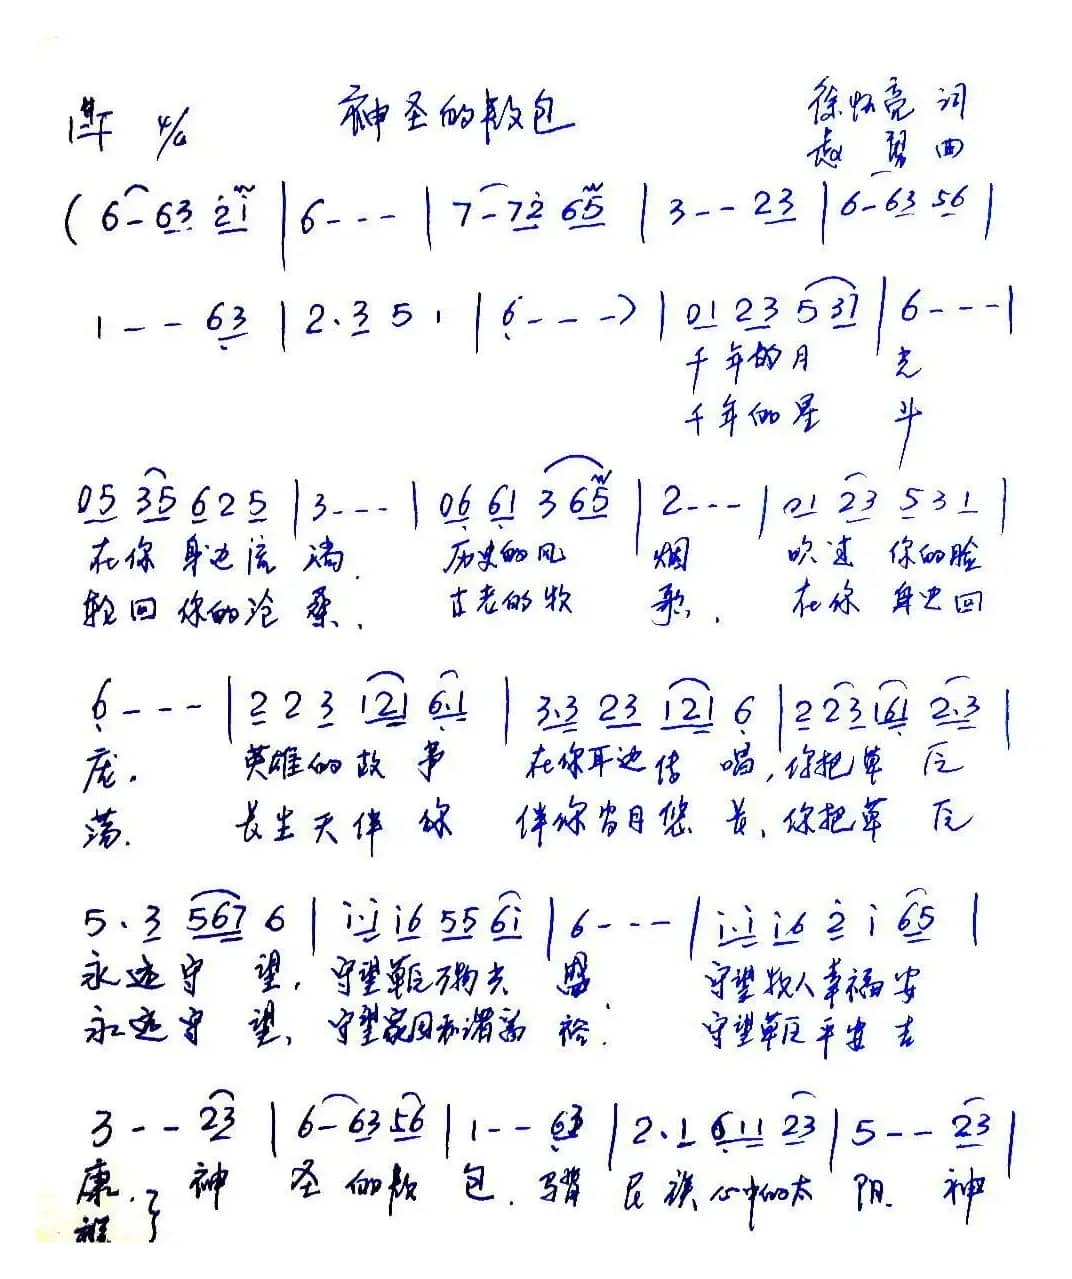 1=F 4/4 神圣的敖包 徐怀亮 词
曲
( 6 - 63 2̇1̇ | 6 - - - | 7 - 72̇ 65 | 3 - - 23 | 6 - 63 56 |
1 - - 6̣3 | 2. 3 5 1 | 6̣ - - - ) | 01 23 5 31 | 6 - - - |
千年的月 光
千年的星 斗
05 35 6 2 5 | 3 - - - | 06̣ 6̣1 3 65 | 2 - - - | 01 23 5 3 1 |
在你 身边流 淌. 历史的风 烟 吹过 你的脸
轮回 你的沧 桑. 古老的牧 歌. 在你 身边回
6̣ - - - | 2 2 3 121 6̣.1 | 3.3 23 121 6̣ | 2 23 16̣1 2.3 |
庞. 英雄的故 事 在你耳边传 唱, 你把草 原
荡. 长生天伴 你 伴你岁月悠 长, 你把草 原
5. 3 567 6 | 1̇.1̇ 1̇6 55 61̇ | 6 - - - | 1̇.1̇ 1̇6 2̇ 1̇ 65 |
永远守 望, 守望草原万物共 守望牧人幸福安
永远守 望, 守望家园和谐富 裕. 守望草原平安吉
3 - - 23 | 6 - 63 56 | 1 - - 6̣3 | 2. 1 6̣11 23 | 5 - - 23 |
康. 神 圣 的敖 包. 民 族 心中的太 阳. 神
祥